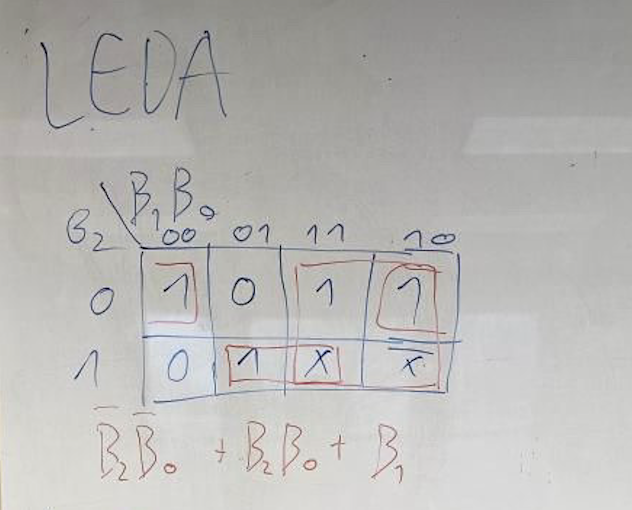 LEDA
B₁B₀
B₂ 00 01 11 10
0 1 0 1 1
1 0 1 X X
B̅₂B̅₀ + B₂B₀ + B₁